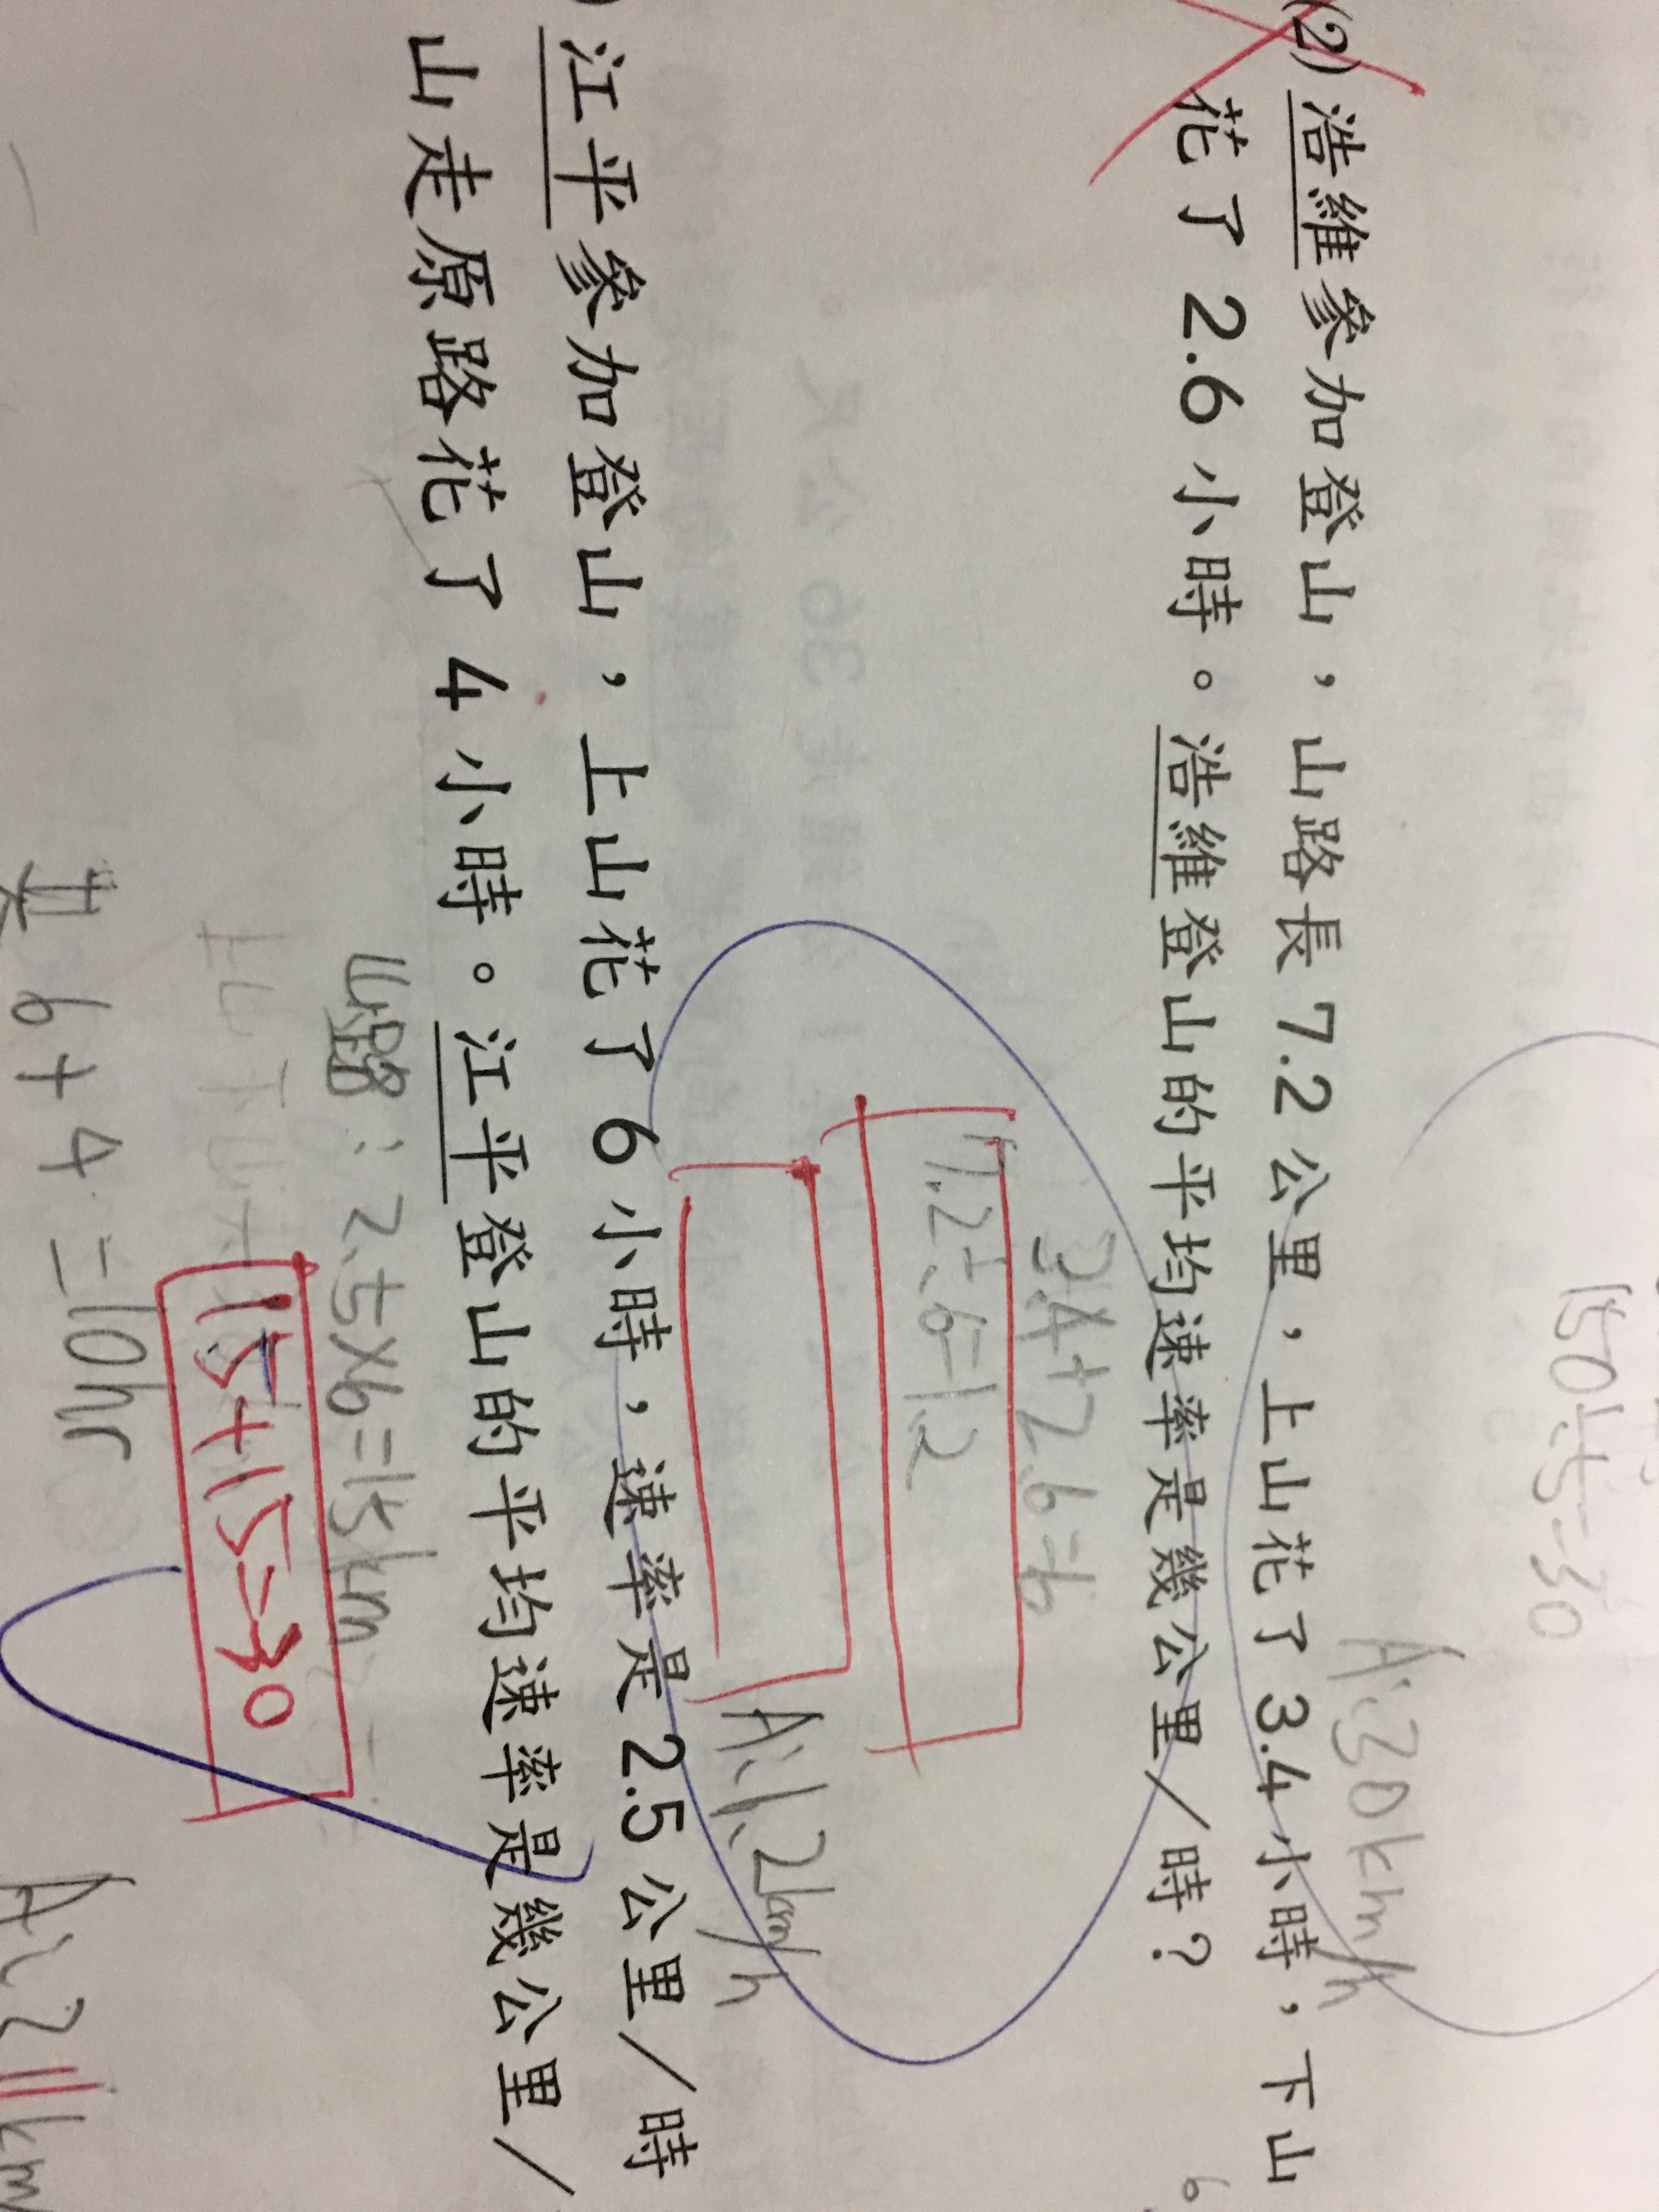 150÷5=30
A:30km/h
(2) 浩維參加登山，山路長 7.2 公里，上山花了 3.4 小時，下山
花了 2.6 小時。浩維登山的平均速率是幾公里／時？
3.4+2.6=6
7.2÷6=1.2
A:1.2km/h
江平參加登山，上山花了 6 小時，速率是 2.5 公里／時
山走原路花了 4 小時。江平登山的平均速率是幾公里／
山路：2.5×6=15km
15+15=30
共6+4=10hr